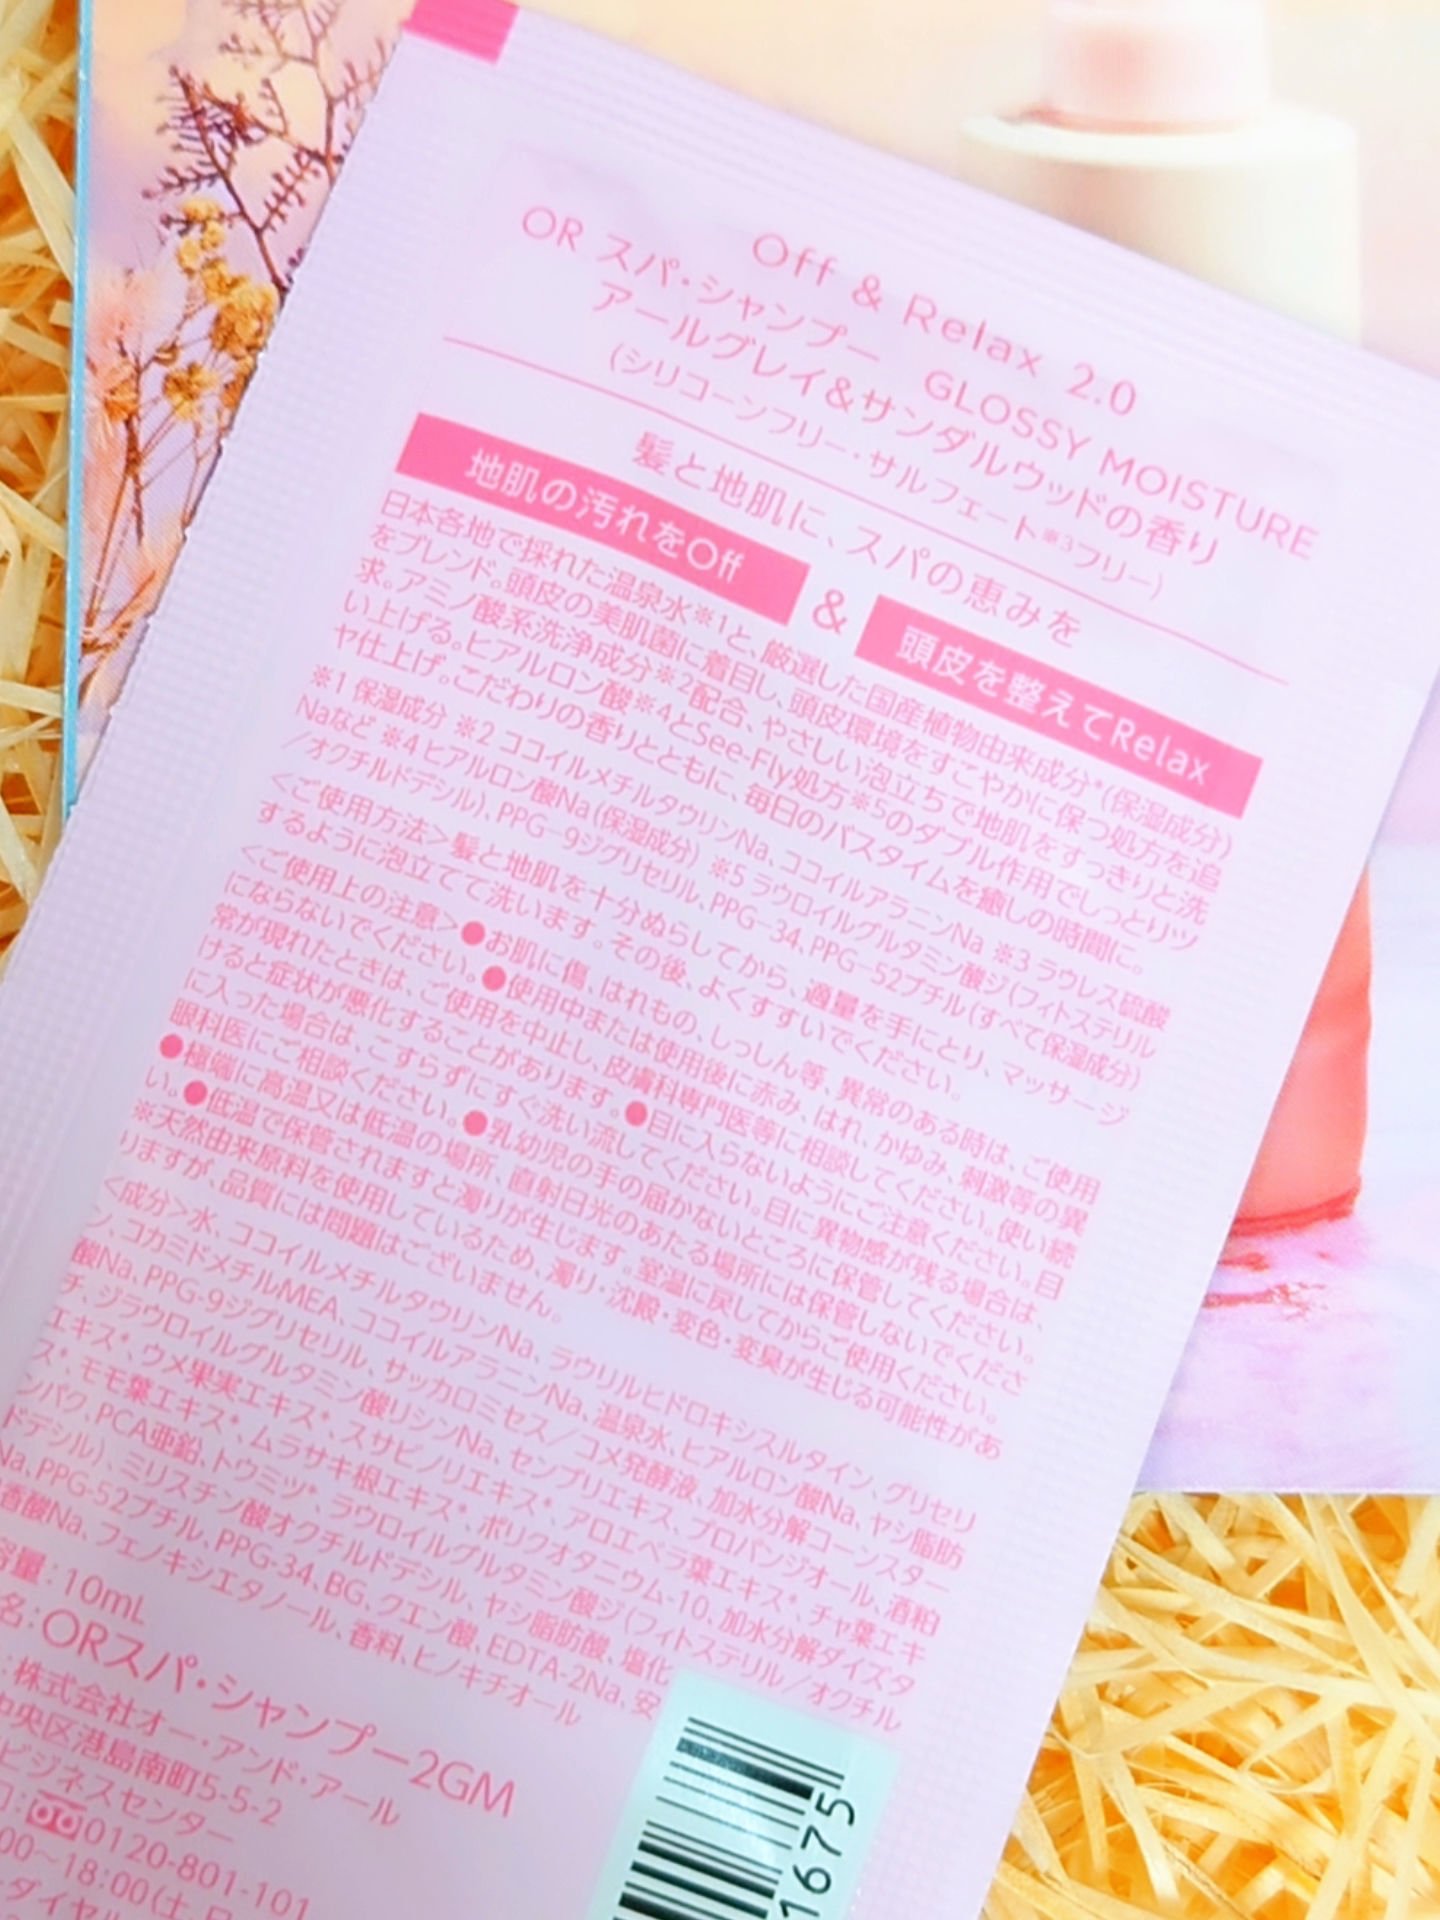 Off & Relax 2.0
OR スパ・シャンプー GLOSSY MOISTURE
アールグレイ&サンダルウッドの香り
(シリコーンフリー・サルフェート※3フリー)
髪と地肌に、スパの恵みを
地肌の汚れをOff & 頭皮を整えてRelax
日本各地で採れた温泉水※1と、厳選した国産植物由来成分*(保湿成分)
をブレンド。頭皮の美肌菌に着目し、頭皮環境をすこやかに保つ処方を追
求。アミノ酸系洗浄成分※2配合、やさしい泡立ちで地肌をすっきりと洗
い上げる。ヒアルロン酸※4とSee-Fly処方※5のダブル作用でしっとりツ
ヤ仕上げ。こだわりの香りとともに、毎日のバスタイムを癒しの時間に。
※1 保湿成分 ※2 ココイルメチルタウリンNa、ココイルアラニンNa ※3 ラウレス硫酸
Naなど ※4 ヒアルロン酸Na(保湿成分) ※5 ラウロイルグルタミン酸ジ(フィトステリル
/オクチルドデシル)、PPG-9ジグリセリル、PPG-34、PPG-52ブチル(すべて保湿成分)
<ご使用方法>髪と地肌を十分ぬらしてから、適量を手にとり、マッサージ
するように泡立てて洗います。その後、よくすすいでください。
<ご使用上の注意>●お肌に傷、はれもの、しっしん等、異常のある時は、ご使用
にならないでください。●使用中または使用後に赤み、はれ、かゆみ、刺激等の異
常が現れたときは、ご使用を中止し、皮膚科専門医等に相談してください。使い続
けると症状が悪化することがあります。●目に入らないようにご注意ください。目
に入った場合は、こすらずにすぐ洗い流してください。目に異物感が残る場合は、
眼科医にご相談ください。●乳幼児の手の届かないところに保管してください。
●極端に高温又は低温の場所、直射日光のあたる場所には保管しないでくださ
い。●低温で保管されますと濁りが生じます。室温に戻してからご使用ください。
※天然由来原料を使用しているため、濁り・沈殿・変色・変臭が生じる可能性があ
りますが、品質には問題はございません。
<成分>水、ココイルメチルタウリンNa、ラウリルヒドロキシスルタイン、グリセリ
ン、コカミドメチルMEA、ココイルアラニンNa、温泉水、ヒアルロン酸Na、ヤシ脂肪
酸Na、PPG-9ジグリセリル、サッカロミセス/コメ発酵液、加水分解コーンスター
チ、ジラウロイルグルタミン酸リシンNa、センブリエキス、プロパンジオール、酒粕
エキス*、ウメ果実エキス*、スサビノリエキス*、アロエベラ葉エキス*、チャ葉エキ
ス*、モモ葉エキス*、ムラサキ根エキス*、ポリクオタニウム-10、加水分解ダイズタ
ンパク、PCA亜鉛、トウミツ*、ラウロイルグルタミン酸ジ(フィトステリル/オクチル
ドデシル)、ミリスチン酸オクチルドデシル、ヤシ脂肪酸、塩化
Na、PPG-52ブチル、PPG-34、BG、クエン酸、EDTA-2Na、安
香酸Na、フェノキシエタノール、香料、ヒノキチオール
容量:10mL
名:ORスパ・シャンプー2GM
株式会社オー・アンド・アール
中央区港島南町5-5-2
ビジネスセンター
0120-801-101
00～18:00(土、日
ダイヤル
1675